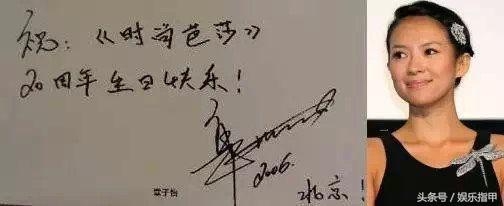 祝：《时尚芭莎》
20周年生日快乐！
章
2006.
章子怡
北京！
头条号 / 娱乐指甲